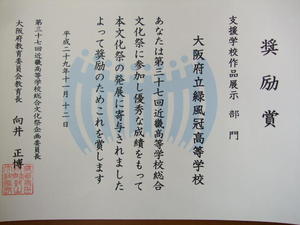 奨励賞
支援学校作品展示 部門
大阪府立緑風冠高等学校
あなたは第三十七回近畿高等学校総合
文化祭に参加し優秀な成績をもって
本文化祭の発展に寄与されました
よって奨励のためこれを賞します
平成二十九年十一月十二日
第三十七回近畿高等学校総合文化祭企画委員長
大阪府教育委員会教育長
向井 正博